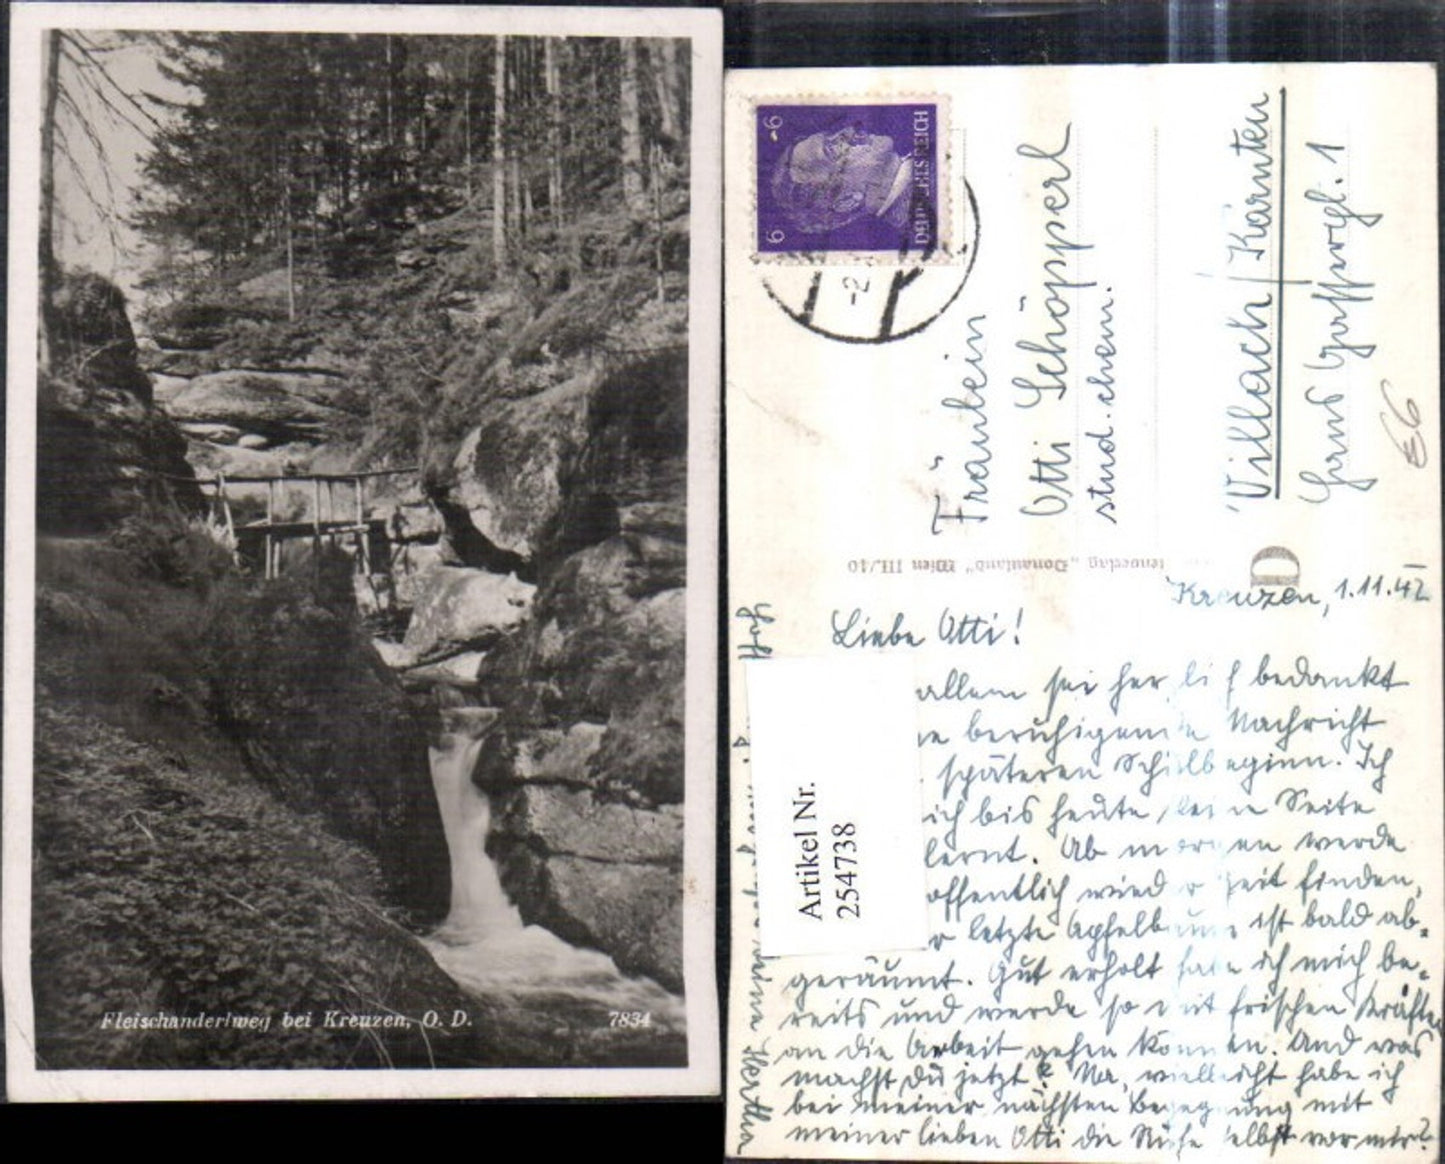 Fleischanderlweg bei Kreuzen, O. D. 7834
6 6
DEUTSCHES REICH
-2.
Fräulein
Otti Schöpperl
stud. chem.
Villach / Kärnten
Hans
E6
"Donauland" Wien III./40
D
Artikel Nr.
254738
Kreuzen, 1.11.42
Liebe Otti!
allem sei herzlich bedankt
beruhigende Nachricht
späteren Schulbeginn. Ich
ich bis heute keine Seite
lernt. Ab morgen werde
offentlich wieder Zeit finden,
r letzte Apfelbaum ist bald ab-
geräumt. Gut erholt habe ich mich be-
reits und werde so mit frischen Kräften
an die Arbeit gehen können. Und was
machst du jetzt? Na, vielleicht habe ich
bei meiner nächsten Begegnung mit
meiner lieben Otti die Ruhe selbst vor mir?
deine Hertha